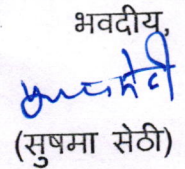 भवदीय,
(सुषमा सेठी)